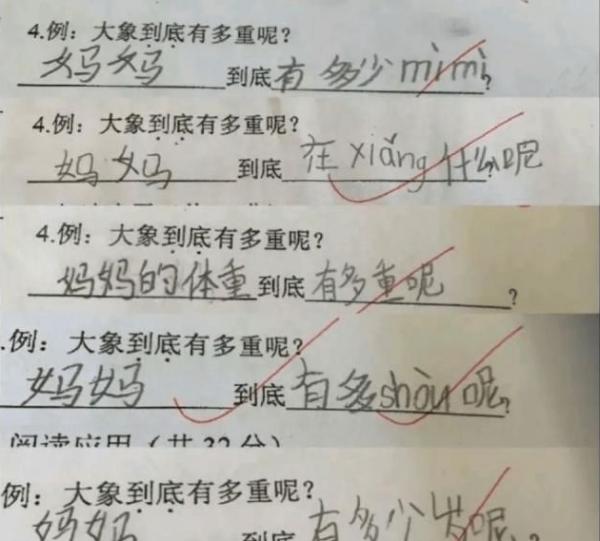 4.例：大象到底有多重呢？
妈妈到底有多少mìmì？
4.例：大象到底有多重呢？
妈妈到底在xiǎng什么呢
4.例：大象到底有多重呢？
妈妈的体重到底有多重呢？
.例：大象到底有多重呢？
妈妈到底有多shòu呢？
阅读应用（共32分）
例：大象到底有多重呢？
妈妈到底有多少岁呢？